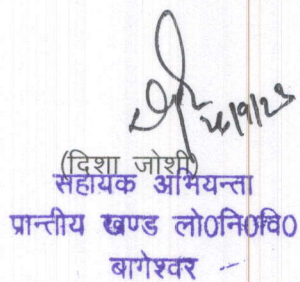 26/9/23
(दिशा जोशी)
सहायक अभियन्ता
प्रान्तीय खण्ड लो0नि0वि0
बागेश्वर